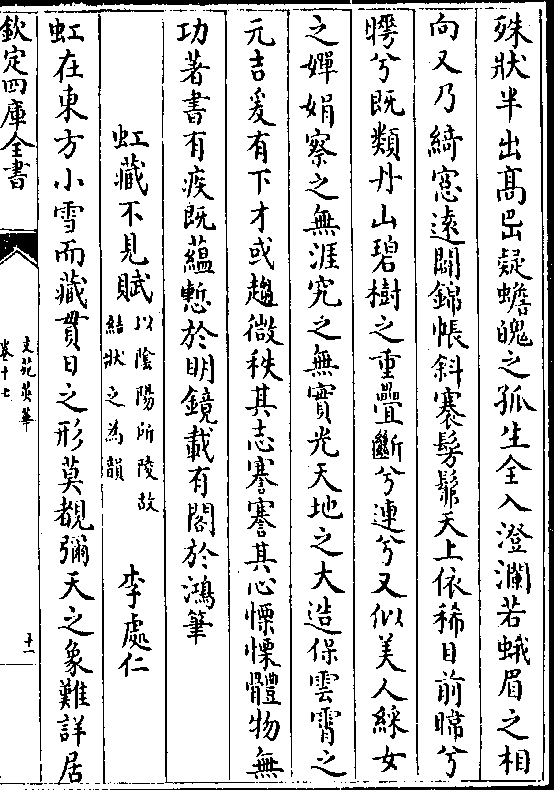 殊狀半出高岊疑蟾魄之孤生全入澄瀾若蛾眉之相
向又乃綺窓遠闢錦帳斜褰髣髴天上依稀日前晞兮
暳兮既類丹山碧樹之重疊斷兮連兮又似美人綵女
之嬋娟察之無涯究之無實光天地之大造保雲霄之
元吉爰有下才或趨微秩其志謇謇其心慄慄體物無
功著書有疾既蘊慙於明鏡載有閣於鴻筆
虹藏不見賦以陰陽所陵故結狀之為韻 李處仁
虹在東方小雪而藏貫日之形莫覩彌天之象難詳居
欽定四庫全書
文苑英華
卷十七
十一